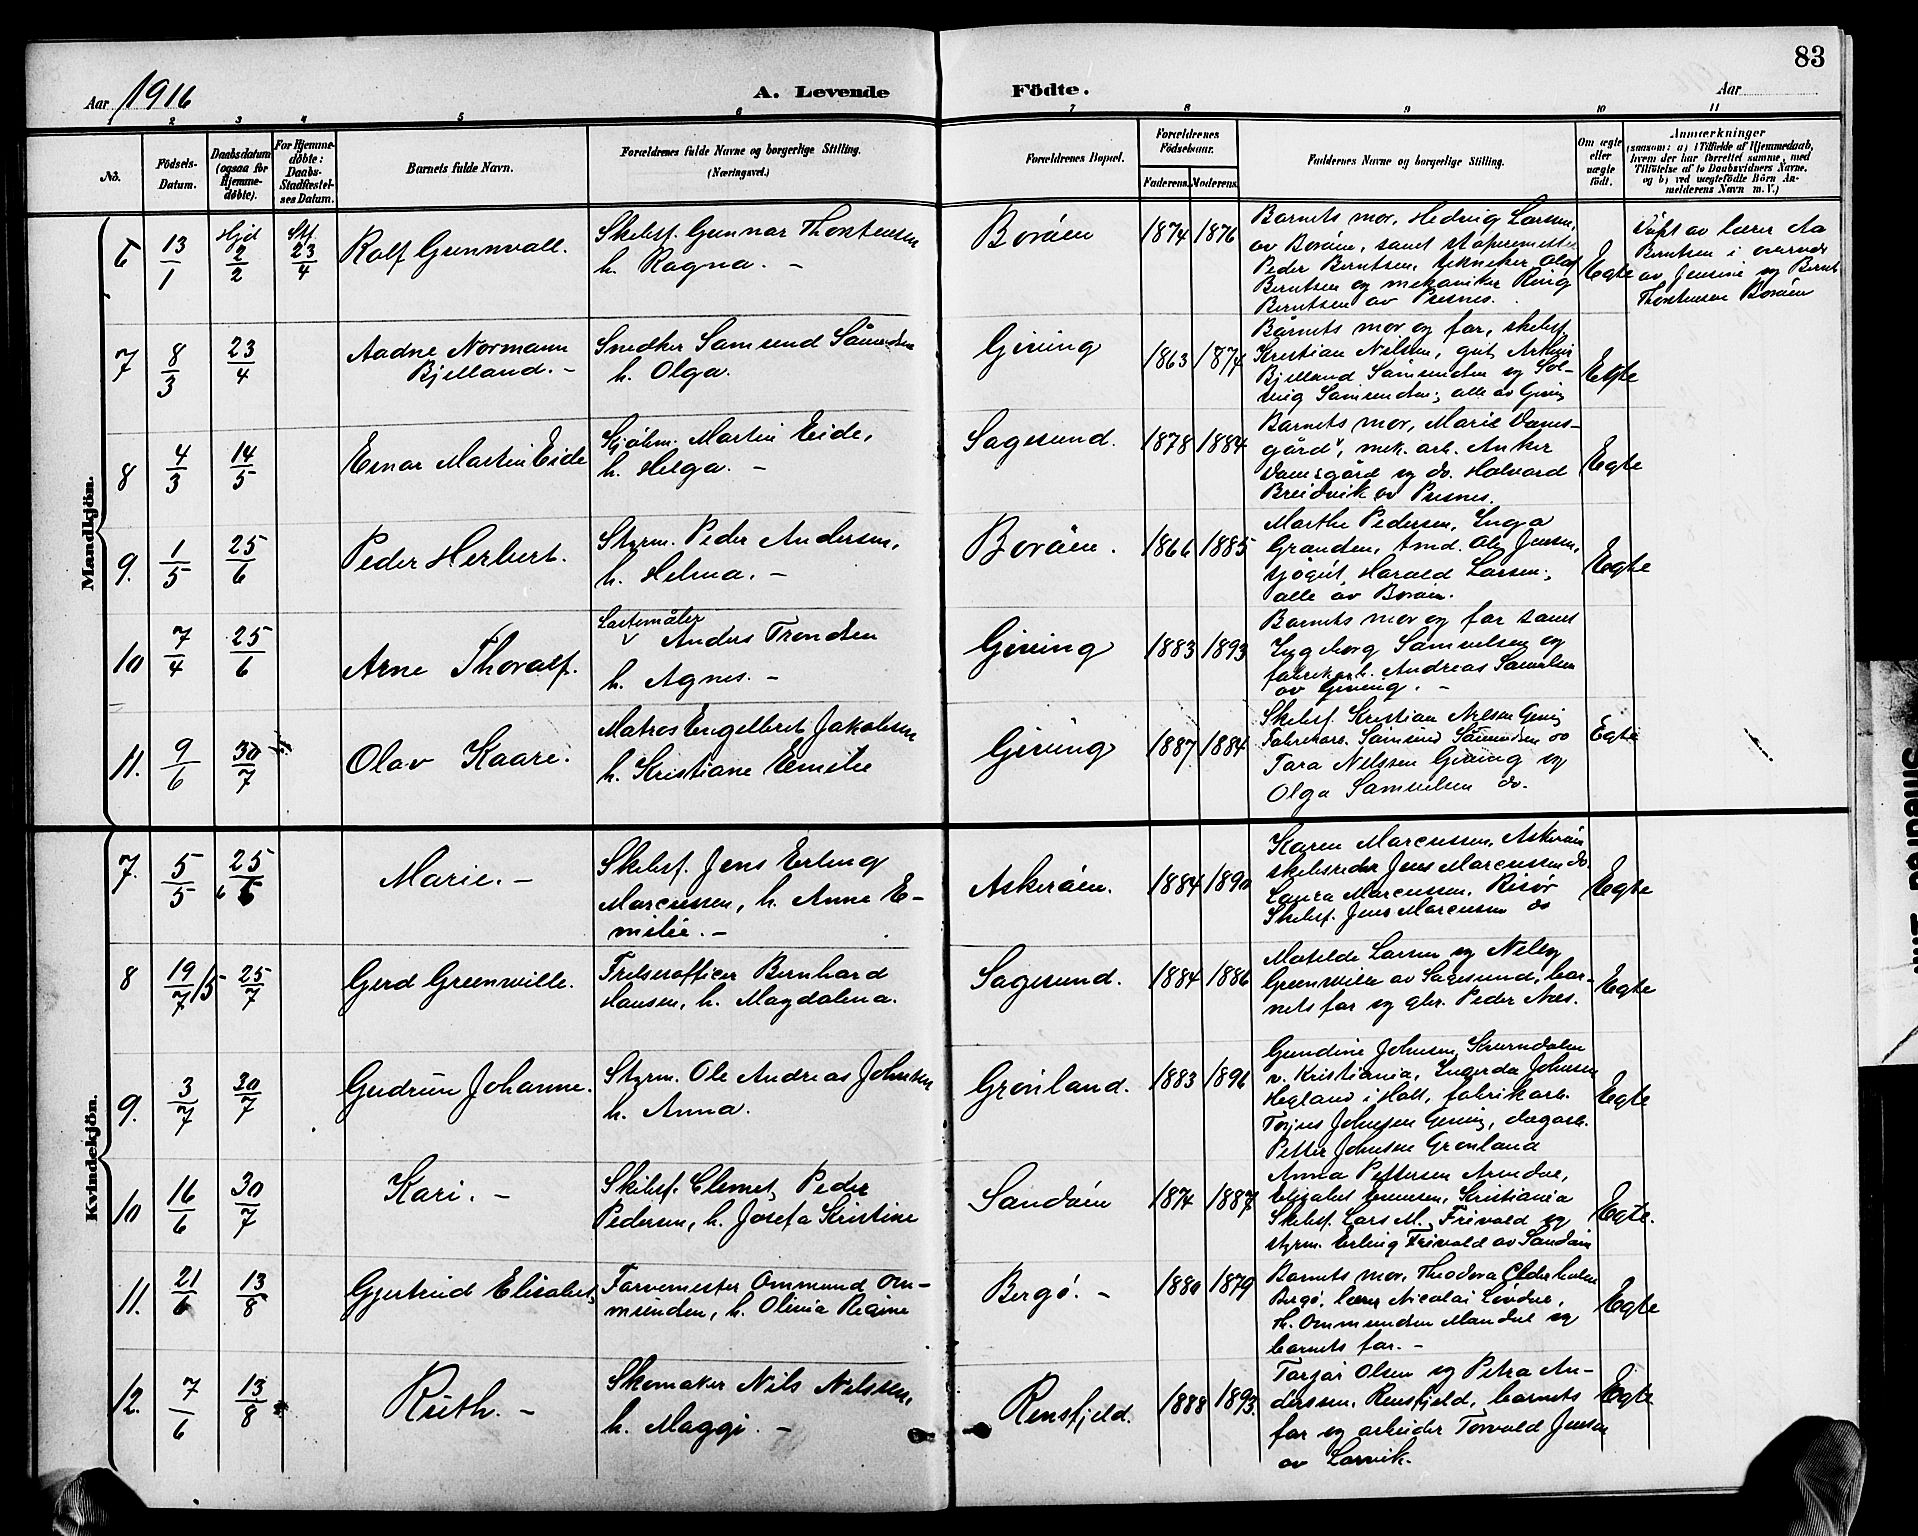 83
Aar 1916
A. Levende
Födte.
Aar
2 3 4 5 6 7 8 9 10 11
No.
Födsels-Datum.
Daabsdatum (ogsaa for Hjemme-döbte).
For Hjemme-döbte: Daabs-Stadfæstel-ses Datum.
Barnets fulde Navn.
Forældrenes fulde Navne og borgerlige Stilling.
(Næringsvei.)
Forældrenes Bopæl.
Forældrenes Födselsaar.
Faderens. Moderens.
Faddernes Navne og borgerlige Stilling.
Om ægte eller uægte födt.
Anmærkninger
(saasom: a) i Tilfælde af Hjemmedaab, hvem der har forrettet samme, med Tilföielse af to Daabsvidners Navne, og b) ved uægtefödte Börn An-melderens Navn m. V.)
Mandkjön.
6 13/1 Hjd 2/2 Stf. 23/4 Rolf Gunnvall.
Skibsf. Gunnar Thorstensen
h. Ragna. –
Boröen 1874 1876
Barnets mor, Hedvig Larsen,
av Boröen, samt støperimester
Peder Berntsen, tekniker Olaf
Berntsen og mekaniker Ring
Berntsen av Presnes.
Egte
Døpt av lærer Aa
Berntsen i overvær
av Jensine og Bernt
Thorstensen Boröen
7 8/3 23/4 Aadne Normann
Bjelland. –
Snedker Samund Såmundsen
h. Olga.
Giving 1863 1874
Barnets mor og far, skibsf.
Kristian Nilsen, gut Arthur
Bjelland Samundsen og Sol-
veig Samundsen; alle av Giving
Egte
8 4/3 14/5 Einar Martin Eide
Sjøhm. Martin Eide,
h. Helga. –
Sagesund. 1878 1884
Barnets mor, Marie Vams-
gård, mek. arb. Anker
Vamsgård og do. Halvard
Breidvik av Presnes.
Egte
9. 1/5 25/6 Peder Herbert.
Styrm. Peder Andersen,
h. Helma. –
Boröen. 1866 1885
Marthe Pedersen, Inga
Granden, tmd. Ole Jensen,
sjøgut Harald Larsen;
alle av Boröen.
Egte
10 7/4 25/6 Arne Thoralf.
Lastemåler
Anders Trondsen
h. Agnes. –
Giving 1883 1893
Barnets mor og far samt
Ingeborg Samuelsen og
fabrikarb. Andreas Samuelsen
av Giving. –
11. 9/6 30/7 Olav Kaare.
Matros Engelbret Jakobsen
h. Kristiane Emilie
Giving 1887 1884
Skibsf. Kristian Nilsen Giving
Fabrikarb. Samund Såmundsen do
Tara Nelssen Giving og
Olga Samuelsen do.
Egte
Kvindekjön.
7. 5/5 25/6 Marie. –
Skibsf. Jens Erling
Marcussen, h. Anna E-
milie. –
Askeröen. 1884 1890
Karen Marcussen, Askeröen
skibsreder Jens Marcussen do.
Laura Marcussen, Risör
Skibsf. Jens Marcussen do
Egte
8 19/7/5 25/7 Gerd Greenville.
Frelserofficer Bernhard
Hansen, h. Magdalena.
Sagesund. 1884 1886
Matilde Larsen og Nelly
Greenville av Sagesund, bar-
nets far og gbr. Peder Næs.
Egte
9. 3/7 30/7 Gudrun Johanne.
Styrm. Ole Andreas Johnsen
h. Anna.
Grønland. 1883 1896
Gundine Johnsen
v. Kristiania, Ingerda Johnsen
Hegland i Holt, fabrikarb.
Torjus Johnsen Giving, dagarb.
Petter Johnsen Grønland
Egte
10 16/6 30/7 Kari. –
Skibsf. Clemet Peder
Pedersen, h. Josefa Kristine
Sandöen 1874 1887
Anna Pettersen Arendal,
Elizabet Evensen, Kristiania
Skibsf. Lars M. Frivold og
styrm. Erling Frivold av Sandöen
Egte.
11. 21/6 13/8 Gjertrud Elisabet,
Farvemester Ommund Om-
mundsen, h. Olivia Regine
Bergø. – 1880 1879
Barnets mor, Theodora Cederholm
Bergø, lærer Nicolai Løvdal,
Th. Ommundsen Mandal og
barnets far. –
Egte
12. 7/6 13/8 Ruth. –
Skomaker Nils Nilssen,
h. Maggi. –
Rensfjeld. 1888 1893.
Tarjar Olsen og Petra An-
dersen, Rensfjeld, barnets
far og arbeider Torvald Jensen
av Larvik.
Egte